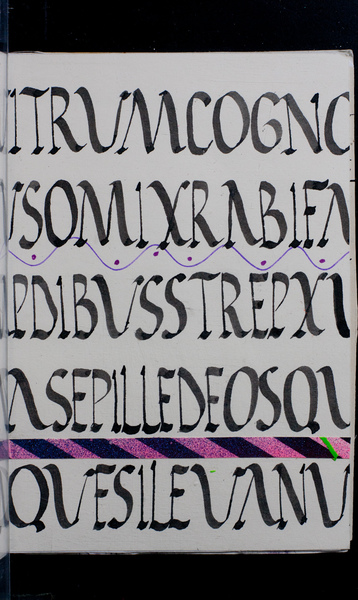 ITRUMCOGNO
USOMIXRABIEN
PDIBUSSTREPXU
ASEPILLEDEOSQU
QUESILEUANU